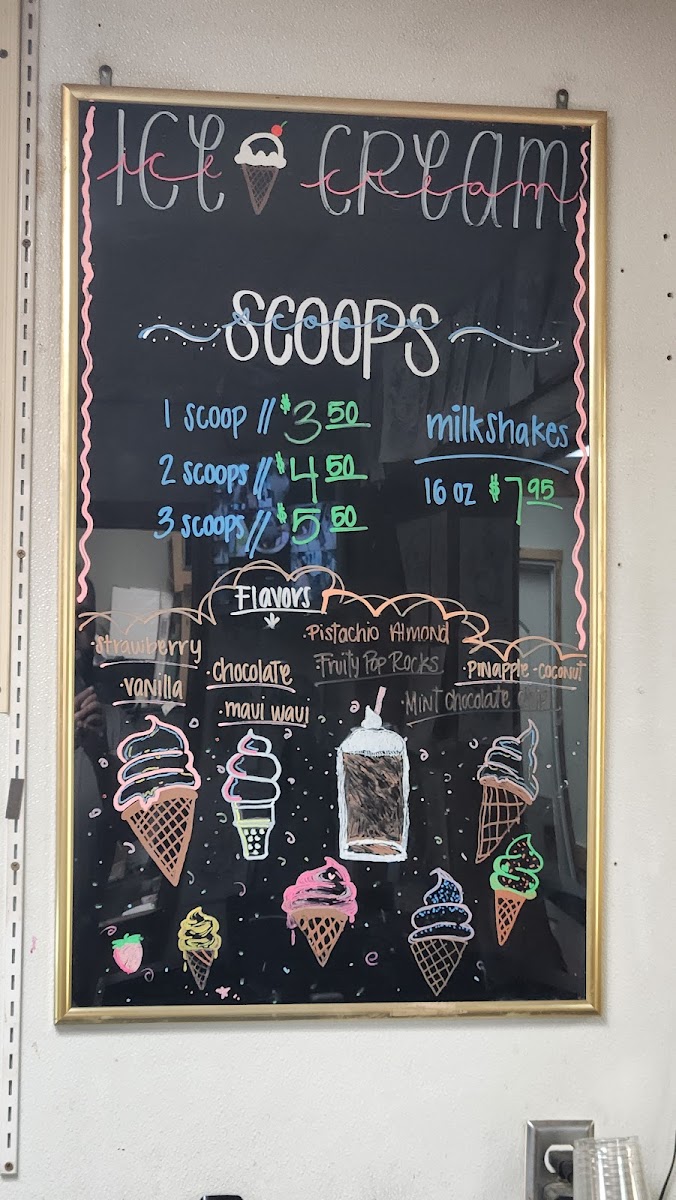 ICE CREAM
ice cream
SCOOPS
scoops
1 scoop // $3.50
2 scoops // $4.50
3 scoops // $5.50
milkshakes
16 oz $7.95
Flavors
·Strawberry
·vanilla
·chocolate
·maui waui
·Pistachio Almond
·Fruity Pop Rocks
·Pinapple-coconut
·Mint chocolate